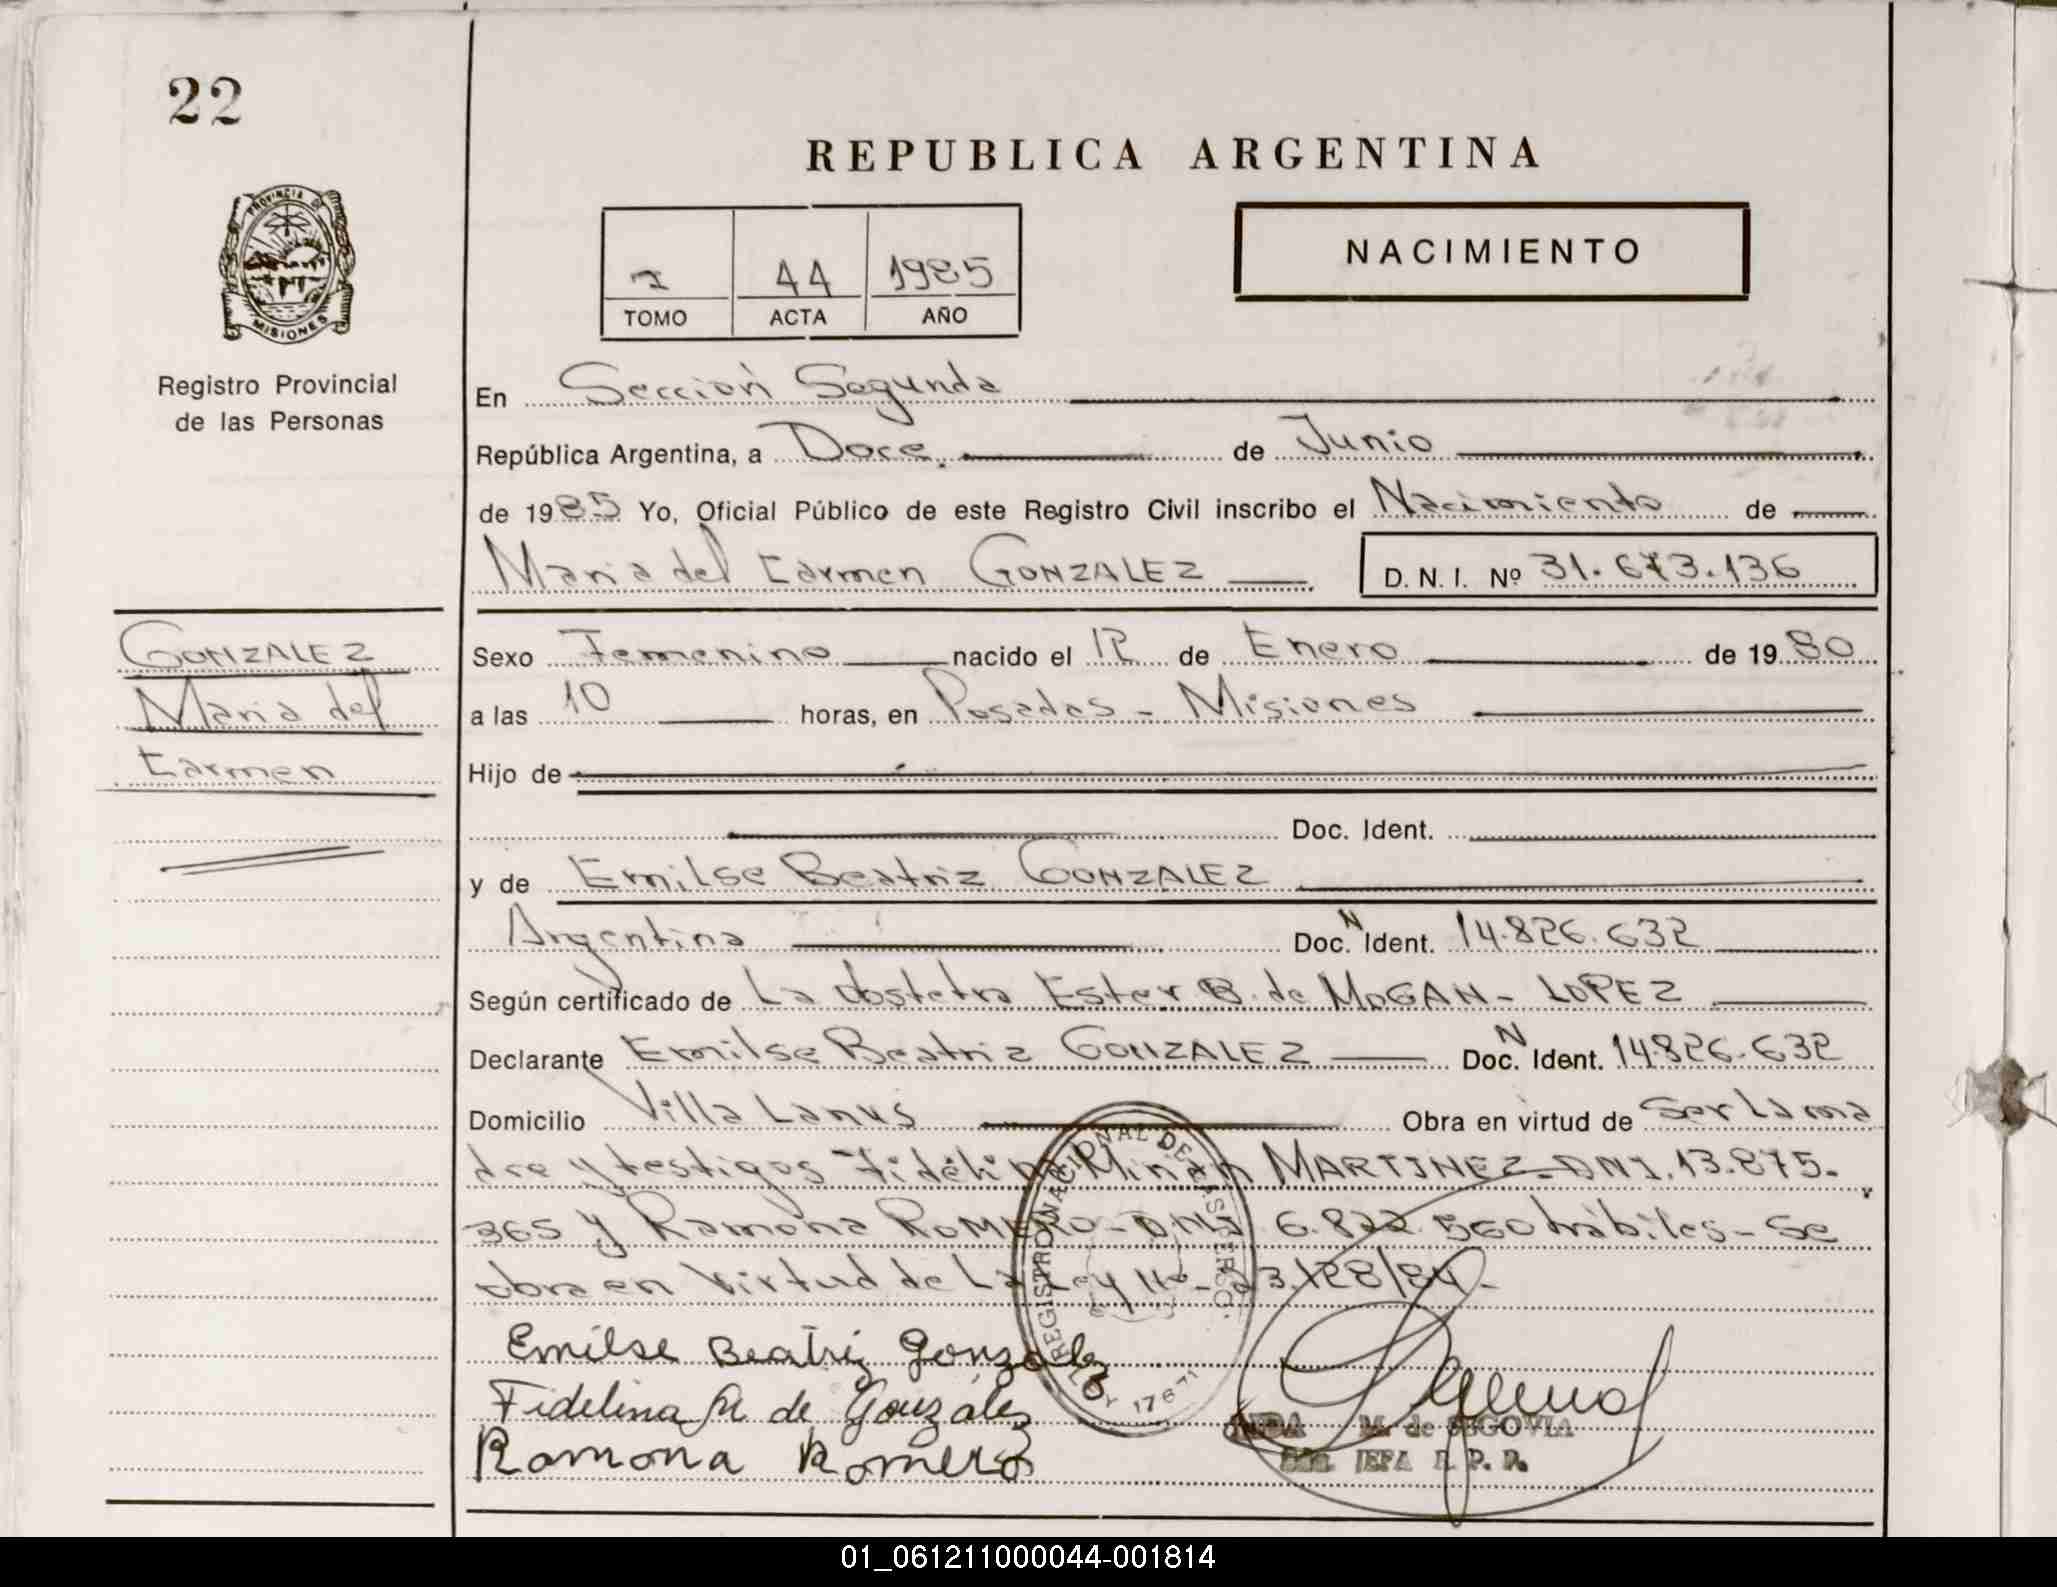 22
REPUBLICA ARGENTINA
44 1985
TOMO ACTA AÑO
NACIMIENTO
PROVINCIA DE
MISIONES
Registro Provincial
de las Personas
En Sección Segunda
República Argentina, a Doce. de Junio
de 1985 Yo, Oficial Público de este Registro Civil inscribo el Nacimiento de
Maria del Carmen GONZALEZ D. N. I. Nº 31.673.136
GONZALEZ
Maria del
Carmen
Sexo Femenino nacido el 12 de Enero de 1980
a las 10 horas, en Posadas - Misiones
Hijo de
Doc. Ident.
y de Emilse Beatriz GONZALEZ
Argentina Doc. N Ident. 14.826.632
Según certificado de La obstetra Ester B. de MOGAN - LOPEZ
Declarante Emilse Beatriz GONZALEZ Doc. N Ident. 14.826.632
Domicilio Villa Lanus Obra en virtud de Ser la ma
dre y testigos Fidelina MARTINEZ - DNI. 13.875.
365 y Ramona ROMERO - DNI 6.822.560 hábiles - Se
obra en Virtud de La Ley Nº - 23.128/84 -
REGISTRO NACIONAL DE LAS PERSO.
LEY 17671
Emilse Beatriz Gonzalez
Fidelina M de González
Ramona Romero
M. de SEGOVIA
JEFA R. P. P.
01_061211000044-001814